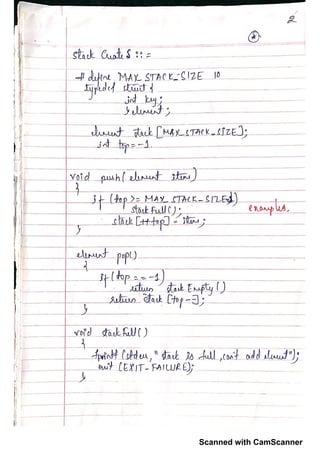 2
Stack CreateS ::=
# define MAX_STACK_SIZE 10
typedef struct {
int key;
} element;
element stack [MAX_STACK_SIZE];
int top = -1.
void push( element item)
{
if (top >= MAX_STACK_SIZE-1)
stackFull();
stack [++top] = item;
}
examples.
element pop()
{
if (top == -1)
return stackEmpty()
return stack [top --];
}
void stackFull()
{
fprintf (stderr, "stack is full, can't add element");
exit (EXIT_FAILURE);
}
Scanned with CamScanner